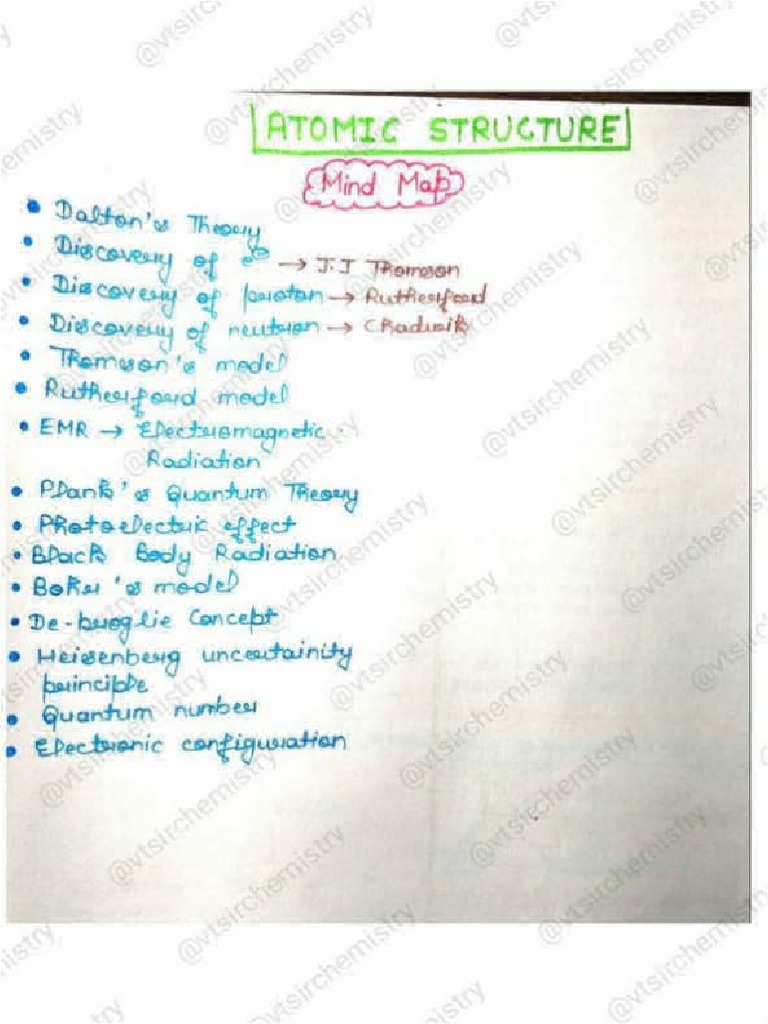 ATOMIC STRUCTURE
Mind Map
• Dalton's Theory
• Discovery of e⊖ → J.J Thomson
• Discovery of proton → Rutherford
• Discovery of neutron → Chadwik
• Thomson's model
• Rutherford model
• EMR → Electromagnetic
Radiation
• Plank's Quantum Theory
• Photoelectric effect
• Black Body Radiation
• Bohr's model
• De-broglie Concept
• Heisenberg uncertainity
principle
• Quantum number
• Electronic configuration
@vtsirchemistry